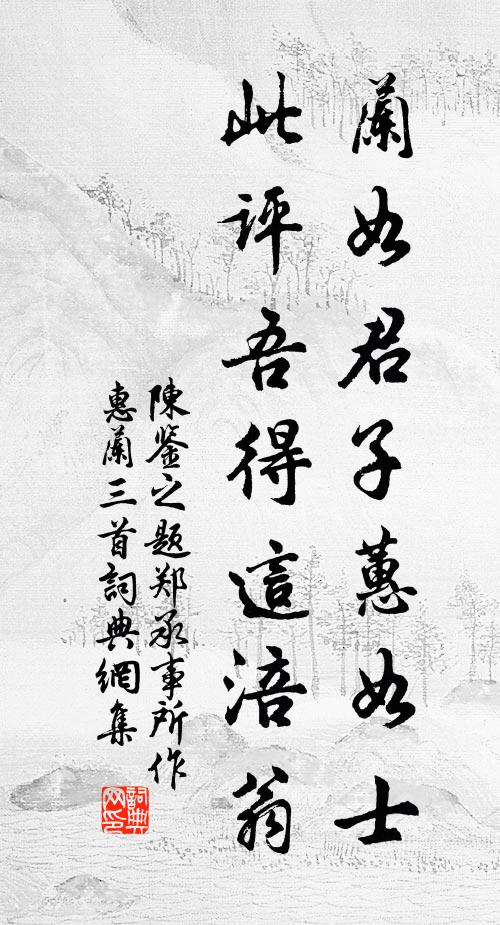 蘭如君子蕙如士
此評吾得這涪翁
陳鉴之題郑承事所作
惠蘭三首詞典網集
詞典网印